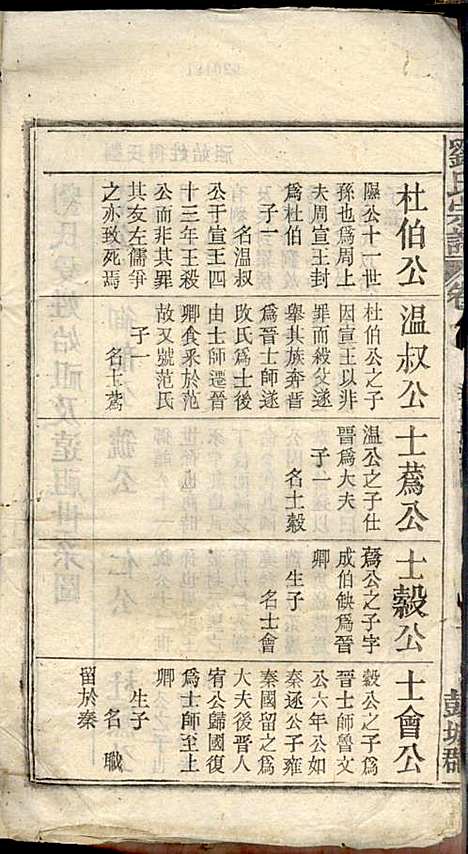 劉氏宗譜
卷
彭城郡
杜伯公
隰公十一世
孫也爲周上
夫周宣王封
爲杜伯
子一
名温叔
公干宣王四
十三年王殺
公而非其罪
其友左儒爭
之亦致死焉
温叔公
杜伯公之子
因宣王以非
罪而殺父遂
舉其族奔晋
爲晉士師遂
攺氏爲士後
由士師遷晉
卿食釆於范
故又號范氏
子一
名士蒍
士蔿公
温公之子仕
晋爲大夫曰
子一
名士縠
士縠公
蔿公之子字
成伯缺爲晉
卿
生子
名士會
士會公
縠公之子爲
晉士師魯文
公六年公如
秦逐公子雍
秦國留之爲
大夫後晋人
宥公歸國復
爲士師至上
卿
生子
名職
留於秦